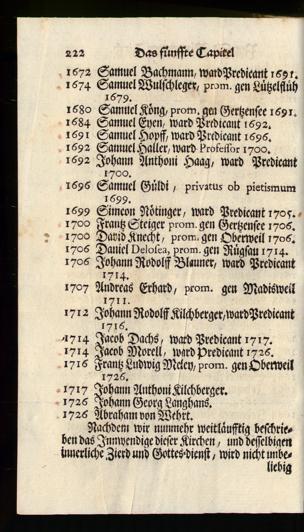 222 Das fünffte Capitel
1672 Samuel Bachmann, ward Predicant 1691.
1674 Samuel Wulschleger, prom. gen Lützelflüh
1679.
1680 Samuel Köng, prom. gen Gertzensee 1691.
1684 Samuel Eyen, ward Predicant 1692.
1691 Samuel Hopff, ward Predicant 1696.
1692 Samuel Haller, ward Professor 1700.
1692 Johann Anthoni Haag, ward Predicant
1700.
1696 Samuel Güldi, privatus ob pietismum
1699.
1699 Simeon Nötinger, ward Predicant 1705.
1700 Frantz Steiger prom. gen Gertzensee 1706.
1700 David Knecht, prom. gen Oberweil 1706.
1706 Daniel Delosea, prom. gen Rügsau 1714.
1706 Johann Rodolff Blauner, ward Predicant
1714.
1707 Andreas Erhard, prom. gen Madisweil
1711.
1712 Johann Rodolff Kilchberger, ward Predicant
1716.
1714 Jacob Dachs, ward Predicant 1717.
1714 Jacob Morell, ward Predicant 1726.
1716 Frantz Ludwig Meley, prom. gen Oberweil
1726.
1717 Johann Anthoni Kilchberger.
1726 Johann Georg Langhans.
1726 Abraham von Wehrt.
Nachdem wir nunmehr weitläufftig beschrie-
ben das Innwendige dieser Kirchen, und desselbigen
innerliche Zierd und Gottes-dienst, wird nicht unbe-
liebig